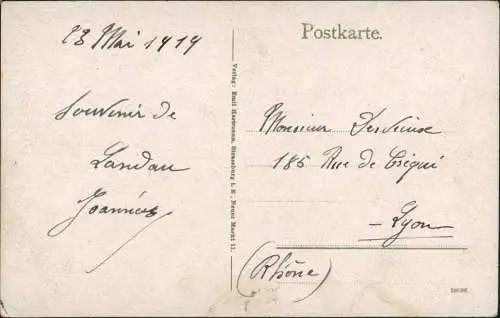 23 Mai 1919
Souvenir de
Landau
Joannès
Verlag: Emil Hartmann, Strassburg i. E., Neuer Markt 11.
Postkarte.
Monsieur
185 Rue de Créqui
Lyon
(Rhône)